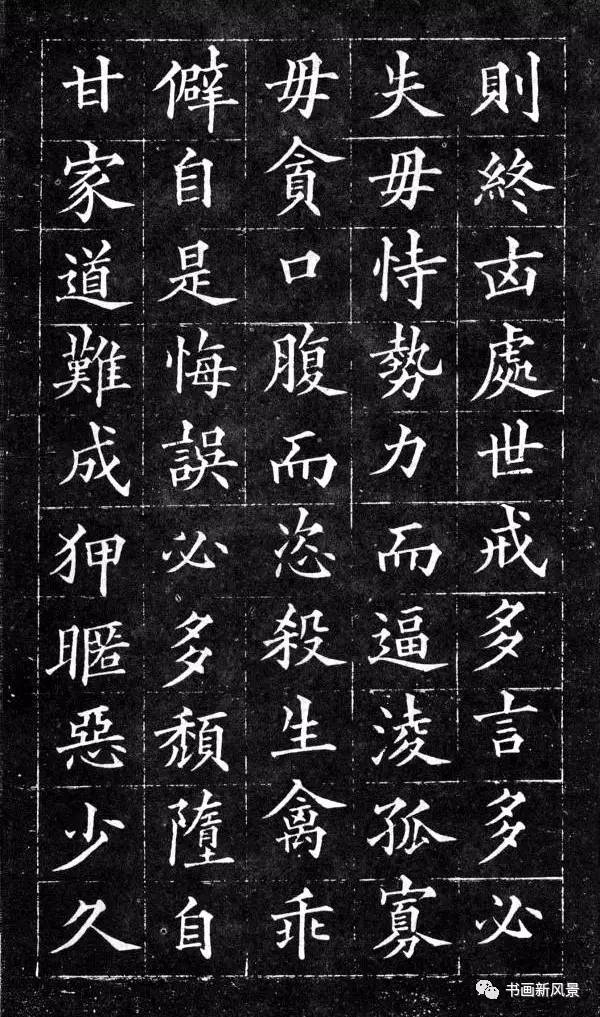 則終凶處世戒多言多必
失毋恃勢力而逼淩孤寡
毋貪口腹而恣殺生禽乖
僻自是悔誤必多頹隳自
甘家道難成狎暱惡少久
书画新风景